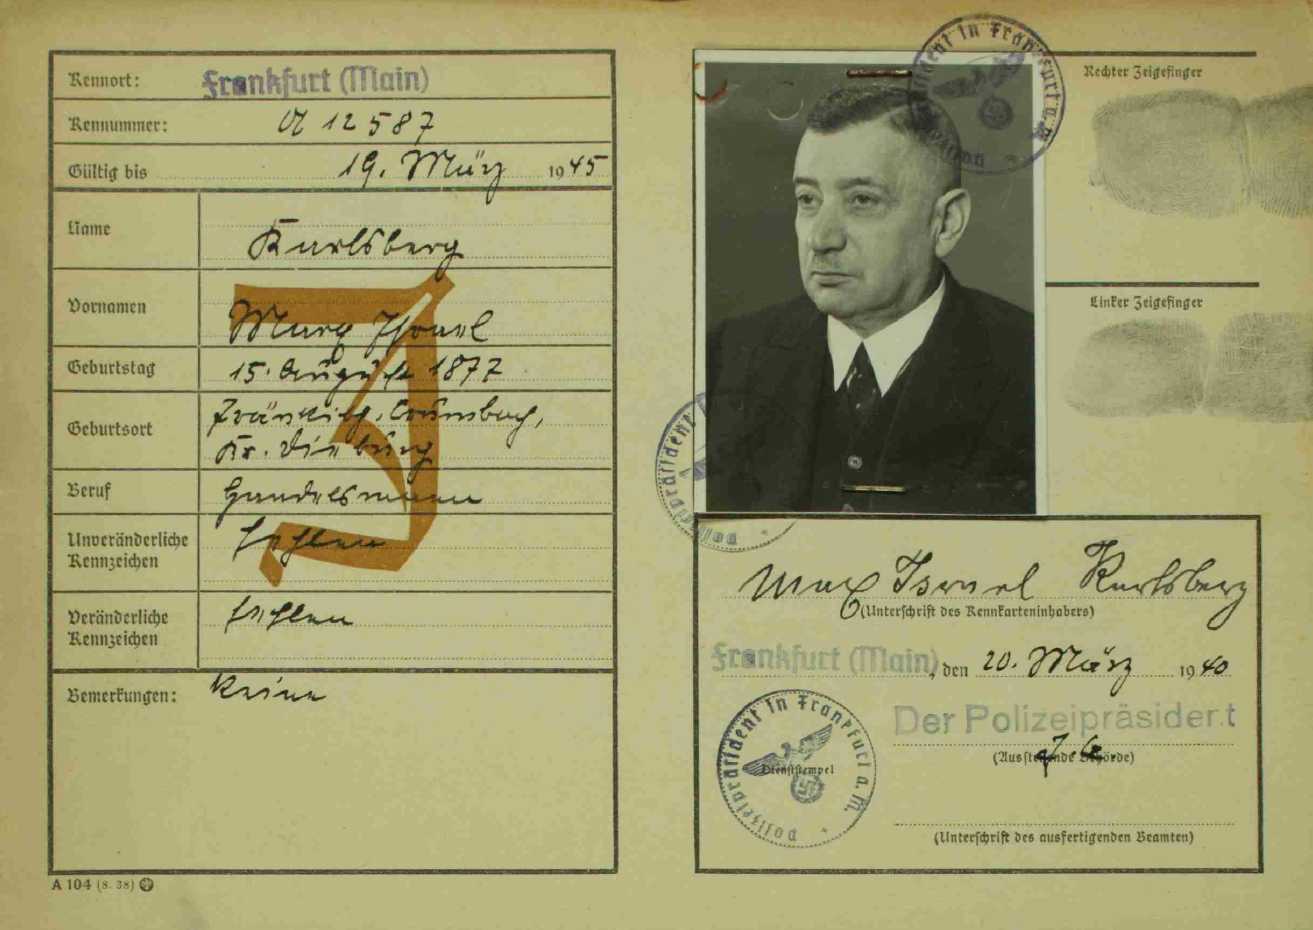 Kennort: Frankfurt (Main)
Kennummer: A 12587
Gültig bis 19. März 1945
Name Karlsberg
Vornamen Marx Israel
Geburtstag 15. August 1877
Geburtsort Fränkisch-Crumbach,
Kr. Dieburg
Beruf Handelsmann
Unveränderliche
Kennzeichen fehlen
Veränderliche
Kennzeichen fehlen
Bemerkungen: Keine
J
A 104 (8. 38)
Polizeipräsident in Frankfurt a. M.
Rechter Zeigefinger
Linker Zeigefinger
Polizeipräsident
Marx Israel Karlsberg
(Unterschrift des Kennkarteninhabers)
Frankfurt (Main), den 20. März 1940
Der Polizeipräsident
(Ausstellende Behörde)
Polizeipräsident in Frankfurt a. M.
Dienststempel
(Unterschrift des ausfertigenden Beamten)